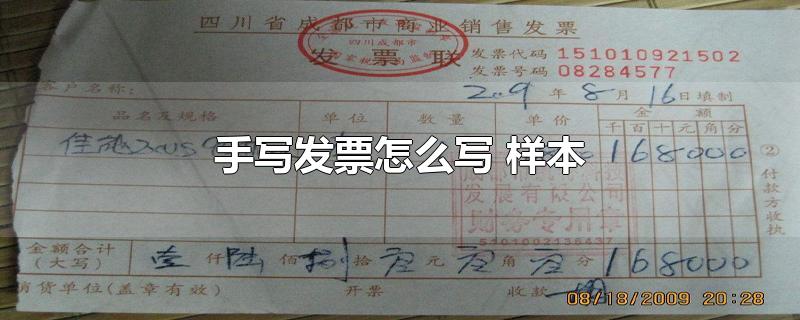 四川省成都市商业销售发票
四川成都市
发票联
发票代码 151010921502
发票号码 08284577
客户名称:
2009 年 8 月 16 日填制
品名及规格 单位 数量 单价 金额
千百十元角分
佳能 168000
手写发票怎么写 样本
发展有限公司
财务专用章
5101002136437
② 付款方收执
金额合计 (大写) 壹仟陆佰捌拾零元零角零分 168000
销货单位(盖章有效) 开票 收款
08/18/2009 20:28